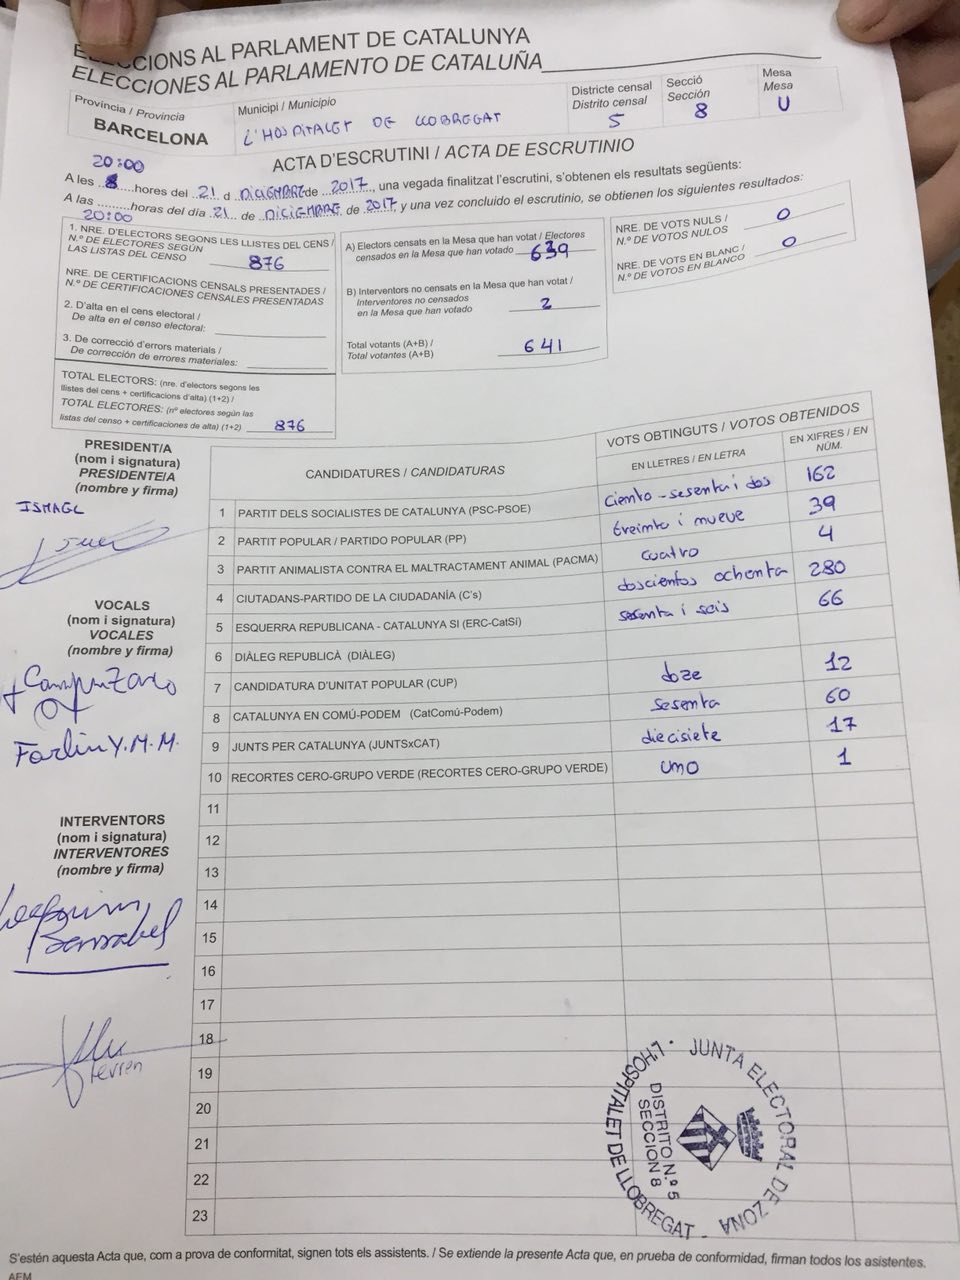 ELECCIONS AL PARLAMENT DE CATALUNYA
ELECCIONES AL PARLAMENTO DE CATALUÑA
Província / Provincia
BARCELONA
Municipi / Municipio
L'HOSPITALET DE LLOBREGAT
Districte censal
Distrito censal
5
Secció
Sección
8
Mesa
Mesa
U
ACTA D'ESCRUTINI / ACTA DE ESCRUTINIO
20:00
A les ..8.....hores del 21 d DICIEMBRE de 2017, una vegada finalitzat l'escrutini, s'obtenen els resultats següents:
A las .........horas del día 21 de DICIEMBRE de 2017, y una vez concluido el escrutinio, se obtienen los siguientes resultados:
20:00
1. NRE. D'ELECTORS SEGONS LES LLISTES DEL CENS /
N.º DE ELECTORES SEGÚN
LAS LISTAS DEL CENSO 876
NRE. DE CERTIFICACIONS CENSALS PRESENTADES /
N.º DE CERTIFICACIONES CENSALES PRESENTADAS
2. D'alta en el cens electoral /
De alta en el censo electoral:
3. De correcció d'errors materials /
De corrección de errores materiales:
TOTAL ELECTORS: (nre. d'electors segons les
llistes del cens + certificacions d'alta) (1+2) /
TOTAL ELECTORES: (nº electores según las
listas del censo + certificaciones de alta) (1+2) 876
A) Electors censats en la Mesa que han votat / Electores
censados en la Mesa que han votado 639
B) Interventors no censats en la Mesa que han votat /
Interventores no censados
en la Mesa que han votado 2
Total votants (A+B) /
Total votantes (A+B) 641
NRE. DE VOTS NULS /
N.º DE VOTOS NULOS 0
NRE. DE VOTS EN BLANC /
N.º DE VOTOS EN BLANCO 0
PRESIDENT/A
(nom i signatura)
PRESIDENTE/A
(nombre y firma)
ISMAEL
VOCALS
(nom i signatura)
VOCALES
(nombre y firma)
Campuzano
Farlin Y. M. M.
INTERVENTORS
(nom i signatura)
INTERVENTORES
(nombre y firma)
CANDIDATURES / CANDIDATURAS
VOTS OBTINGUTS / VOTOS OBTENIDOS
EN LLETRES / EN LETRA
EN XIFRES / EN
NÚM.
1 PARTIT DELS SOCIALISTES DE CATALUNYA (PSC-PSOE) ciento - sesenta i dos 162
2 PARTIT POPULAR / PARTIDO POPULAR (PP) treinta i nueve 39
3 PARTIT ANIMALISTA CONTRA EL MALTRACTAMENT ANIMAL (PACMA) cuatro 4
4 CIUTADANS-PARTIDO DE LA CIUDADANÍA (C's) doscientos ochenta 280
5 ESQUERRA REPUBLICANA - CATALUNYA SI (ERC-CatSí) sesenta i seis 66
6 DIÀLEG REPUBLICÀ (DIÀLEG)
7 CANDIDATURA D'UNITAT POPULAR (CUP) doze 12
8 CATALUNYA EN COMÚ-PODEM (CatComú-Podem) sesenta 60
9 JUNTS PER CATALUNYA (JUNTSxCAT) diecisiete 17
10 RECORTES CERO-GRUPO VERDE (RECORTES CERO-GRUPO VERDE) uno 1
11
12
13
14
15
16
17
18
19
20
21
22
23
JUNTA ELECTORAL DE ZONA
L'HOSPITALET DE LLOBREGAT
DISTRITO N.º 5
SECCION 8
S'estén aquesta Acta que, com a prova de conformitat, signen tots els assistents. / Se extiende la presente Acta que, en prueba de conformidad, firman todos los asistentes.
AEM